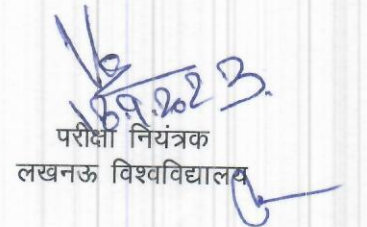 18.9.2023.
परीक्षा नियंत्रक
लखनऊ विश्वविद्यालय